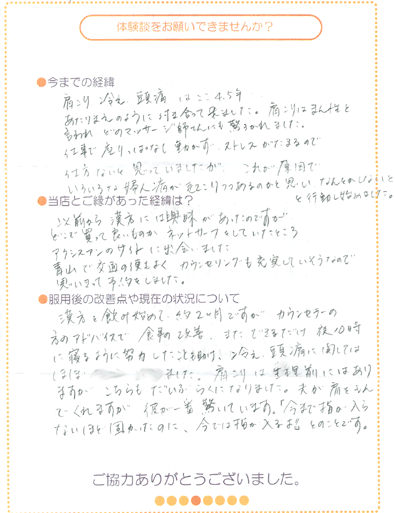 体験談をお願いできませんか？
●今までの経緯
肩こり 冷え 頭痛 はここ4.5年
あたりまえのように付き合って来ました。肩こりはまん性と
言われ どのマッサージ師さんにも驚ろかれました。
仕事で座りっぱなし動かず、ストレスがたまるので
仕方ないと思っていましたが これが原因で
いろいろな婦人病が起こりつつあるのかと思い なんとかしないと
と行動し始めました。
●当店とご縁があった経緯は？
以前から漢方には興味があったのですが
どこで買って良いものか ネットサーフをしていたところ
のサイトに出会いました
青山で交通の便もよく カウンセリングも充実していそうなので
思いきって予約をしました。
●服用後の改善点や現在の状況について
漢方を飲み始めて 約2ヶ月ですが カウンセラーの
方のアドバイスで 食事の改善、またできるだけ 夜10時
に寝るように努力したことも助け、冷え 頭痛に関しては
ほぼ ました。肩こりは生理前にはあり
ますが こちらもだいぶらくになりました。夫が肩をもん
でくれますが 彼が一番驚いています。「今まで指が入ら
ないほど固かったのに、今では指が入るね」とのことです。
ご協力ありがとうございました。